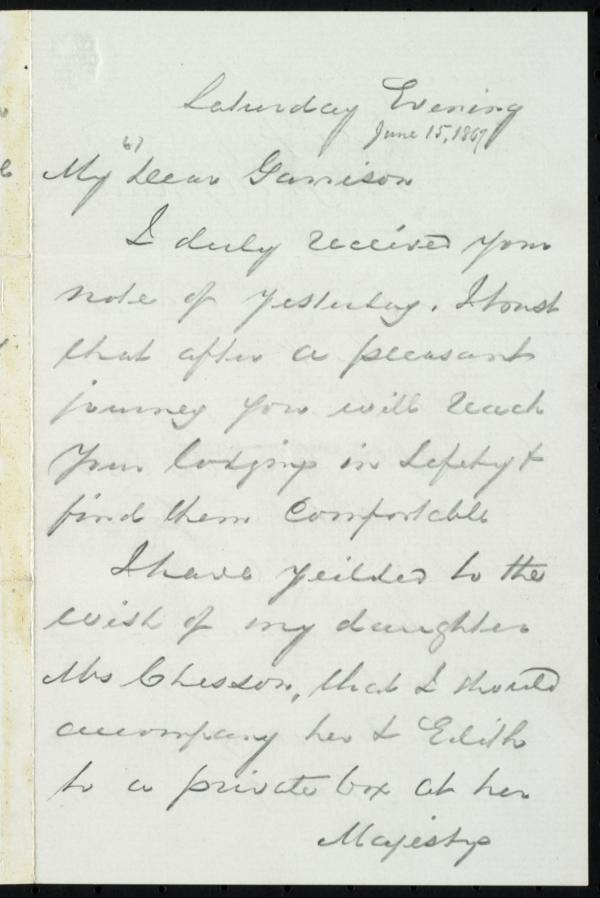 Saturday Evening
June 15, 1867
67
My Dear Garrison
I duly received your
note of yesterday. I trust
that after a pleasant
journey you will reach
your lodgings in Safety &
find them Comfortable
I have yeilded to the
wish of my daughter
Mrs Chesson, that I should
accompany her & Edith
to a private box at her
Majestys